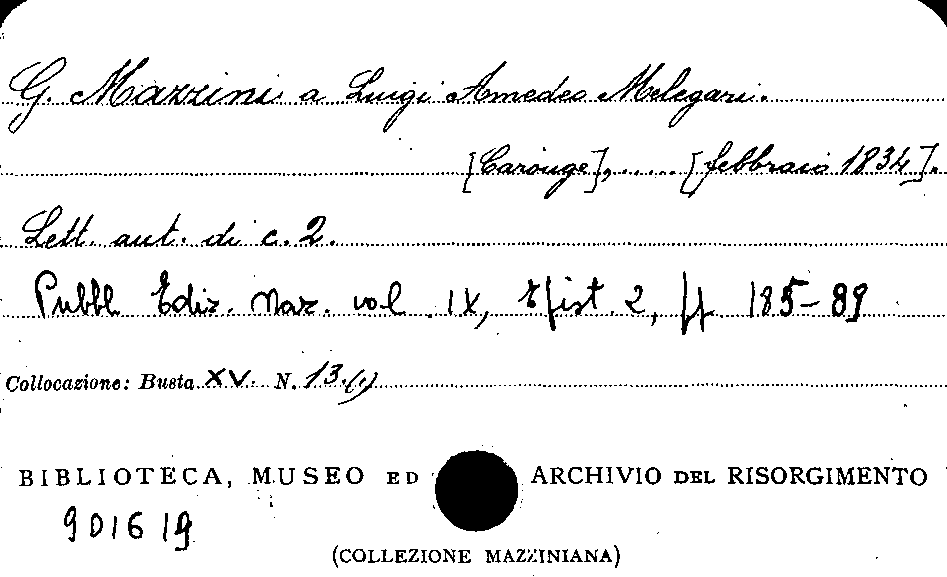 G. Mazzini a Luigi Amedeo Melegari.
[Carouge], ..... [febbraio 1834].
Lett. aut. di c. 2.
Pubbl. Ediz. Naz. vol. IX, Epist. 2, pp. 185-89
Collocazione: Busta XV. N. 13.(1)
BIBLIOTECA, MUSEO ED ARCHIVIO DEL RISORGIMENTO
901619
(COLLEZIONE MAZZINIANA)